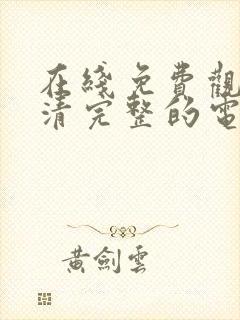 在綫免費觀
清完整的電
黃劍雲